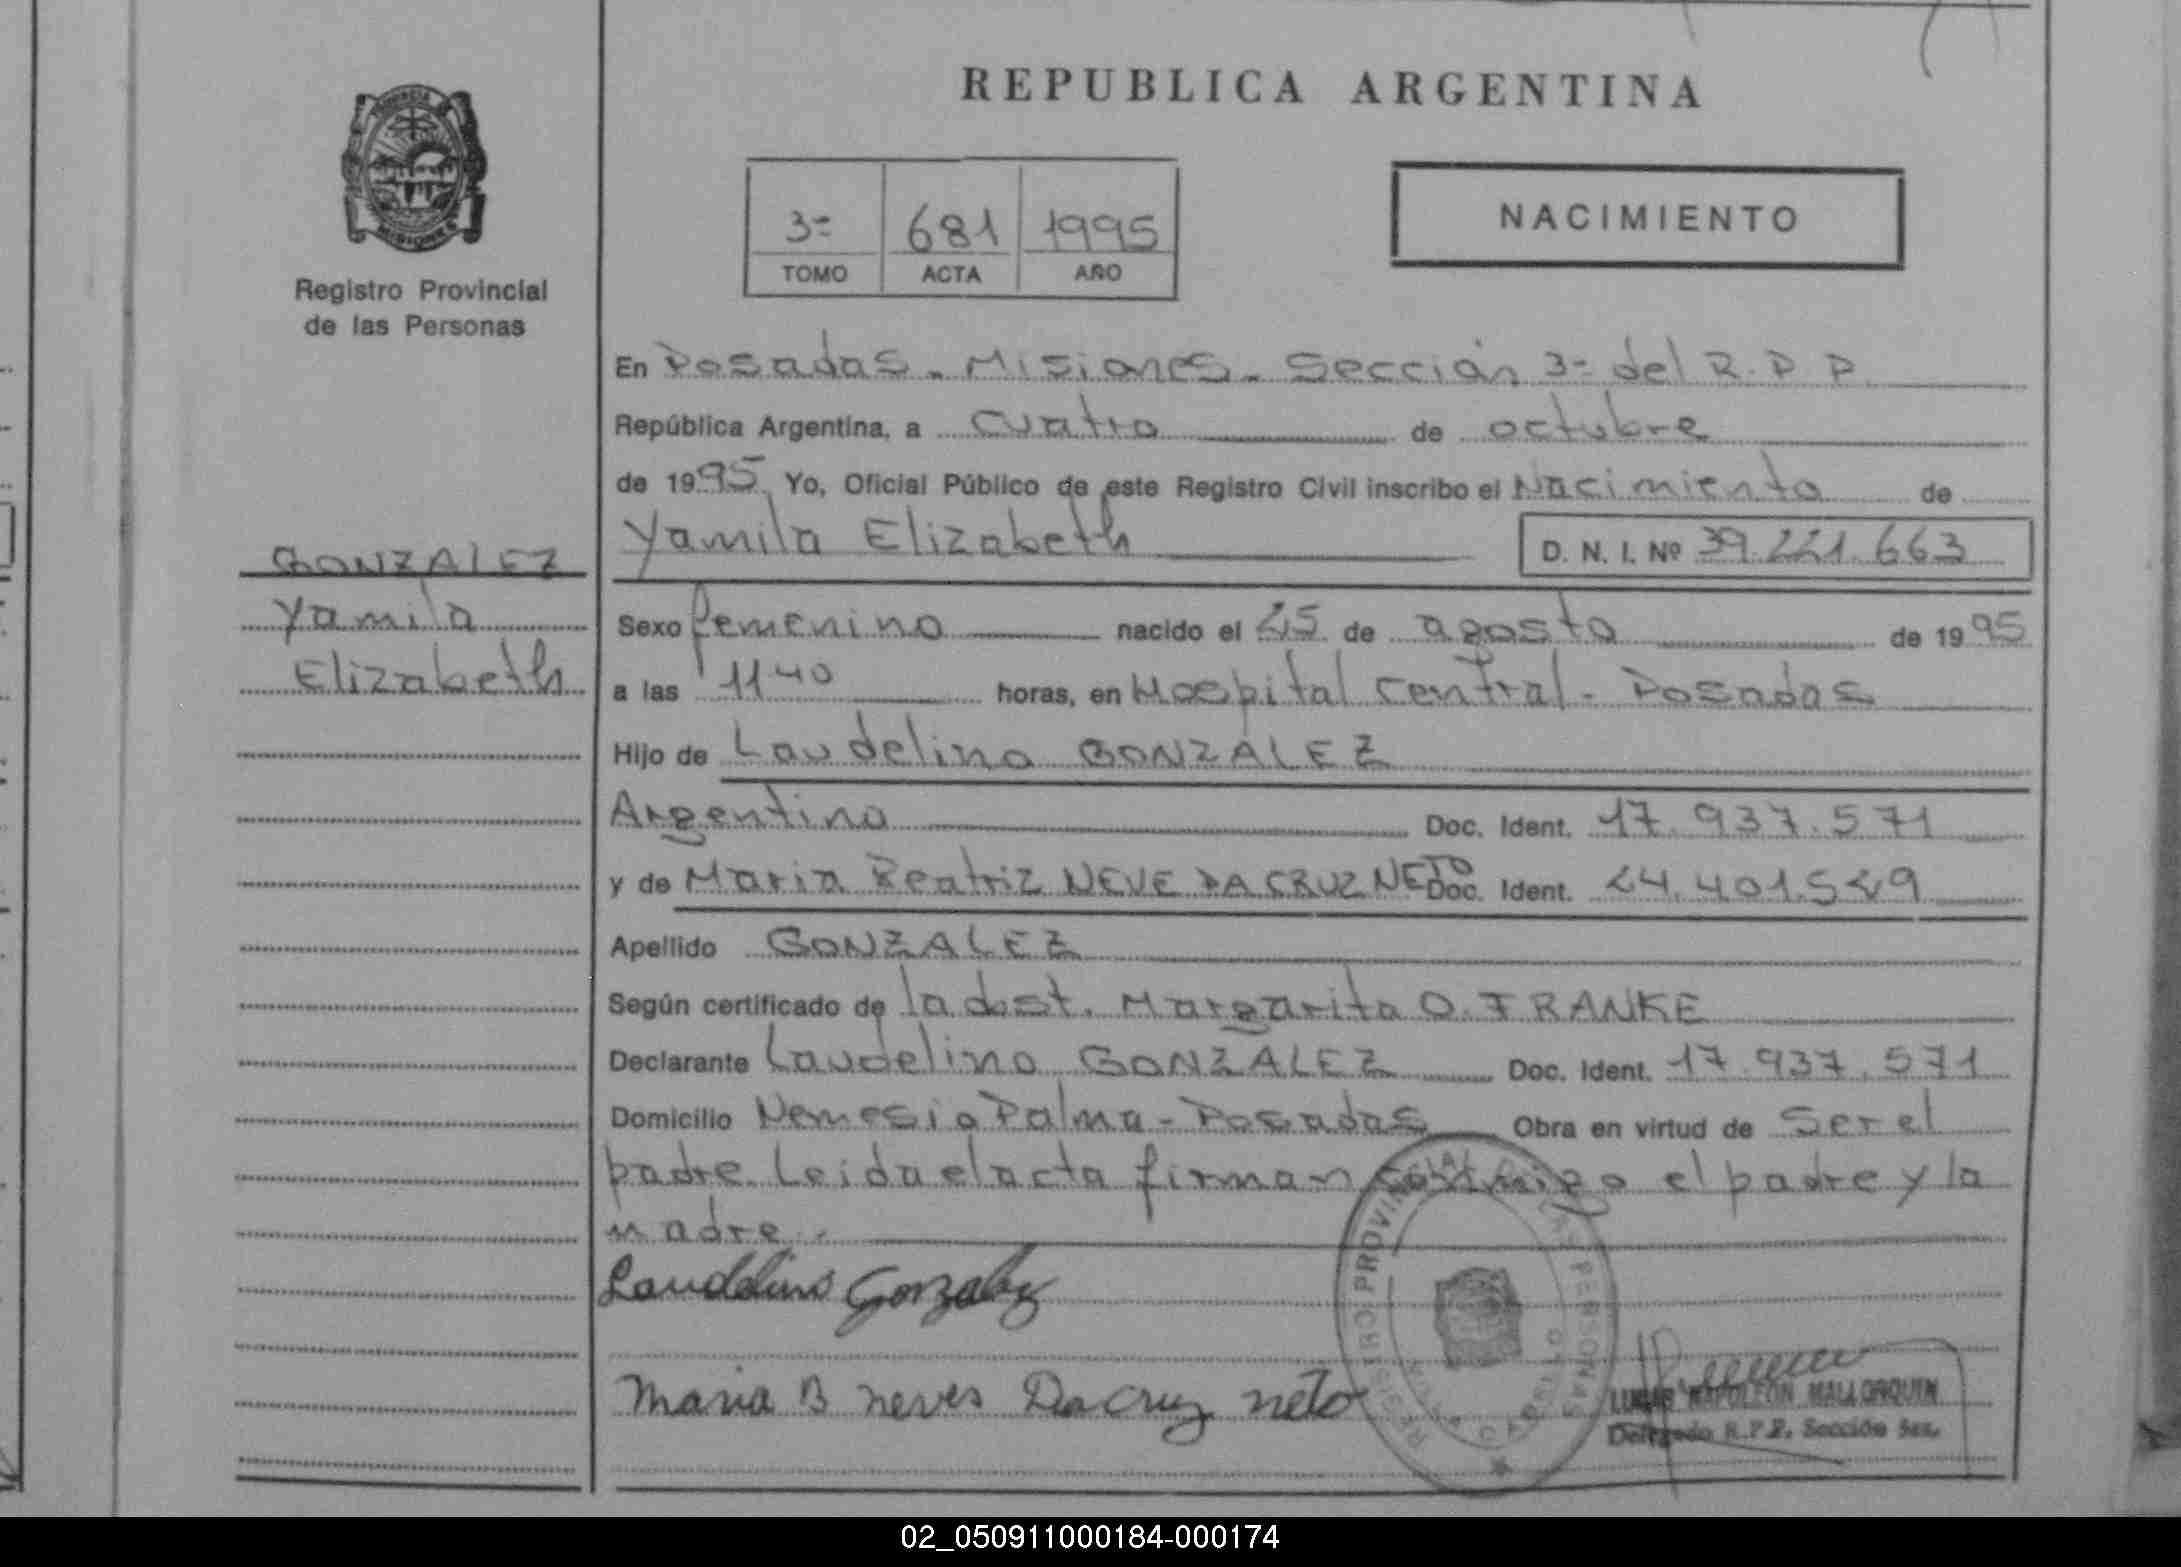 REPUBLICA ARGENTINA
PROVINCIA
MISIONES
Registro Provincial
de las Personas
3ª 681 1995
TOMO ACTA AÑO
NACIMIENTO
En Posadas - Misiones - Sección 3ª del R.P.P.
República Argentina, a cuatro de octubre
de 1995 Yo, Oficial Público de este Registro Civil inscribo el Nacimiento de
Yamila Elizabeth D. N. I. Nº 39.221.663
GONZALEZ
Yamila
Elizabeth
Sexo femenino nacido el 25 de agosto de 1995
a las 11 40 horas, en Hospital Central - Posadas
Hijo de Laudelino GONZALEZ
Argentino Doc. Ident. 17.937.571
y de Maria Beatriz NEVE DA CRUZ NETO Doc. Ident. 24.401.529
Apellido GONZALEZ
Según certificado de la obst. Margarita O. FRANKE
Declarante Laudelino GONZALEZ Doc. Ident. 17.937.571
Domicilio Nemesio Palma - Posadas Obra en virtud de ser el
padre. Leida el acta firman conmigo el padre y la
madre.
Laudelino Gonzalez
Maria B Neves Da Cruz neto
REGISTRO PROVINCIAL DE LAS PERSONAS
LUCAS NAPOLEON MALLORQUIN
Delegado R.P.P. Sección 3ra.
02_050911000184-000174